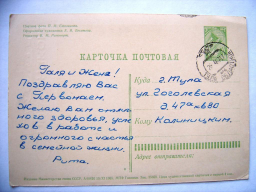 КАРТОЧКА ПОЧТОВАЯ
Галя и Женя!
Поздравляю Вас
с Первомаем.
Желаю Вам отлич
ного здоровья, успе
хов в работе и
огромного счастья
в семейной жизни.
Рита.
Куда г. Тула
ул. Гоголевская
д. 47а кв 80
Кому Калиницким.
Адрес отправителя: